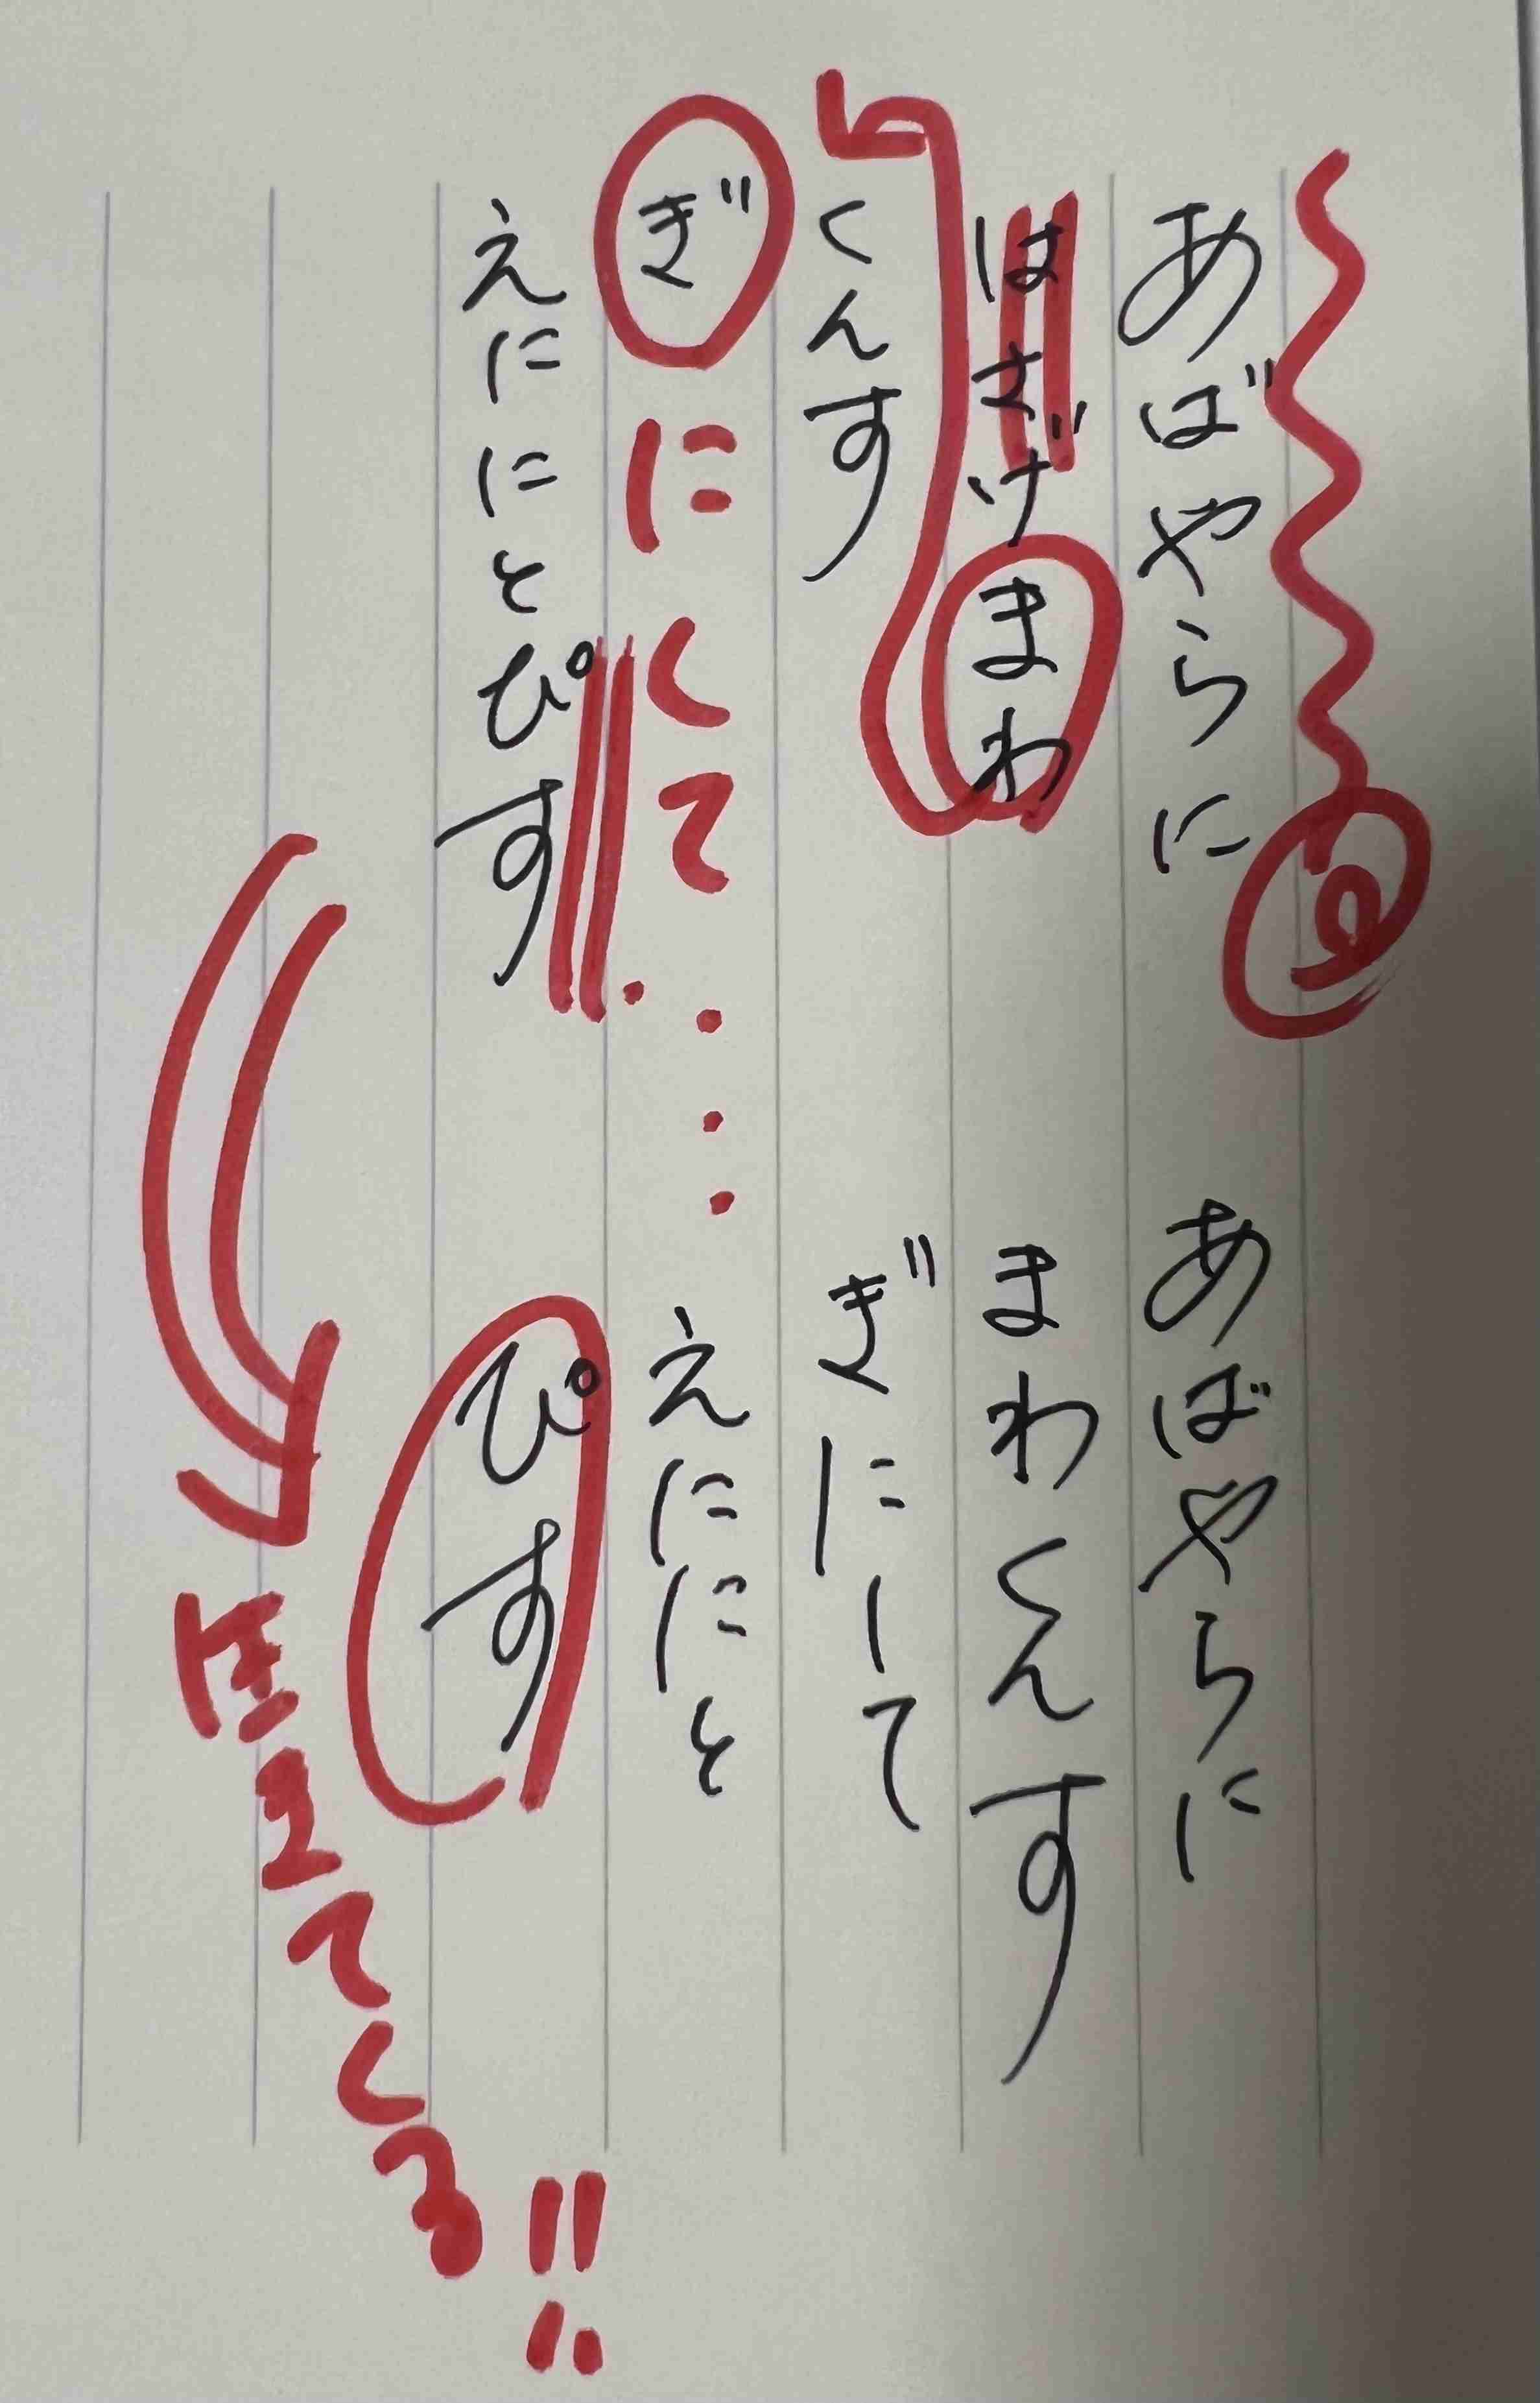 あばやらに
はざけまわ
くんす
ぎにくて・・・・
えににとぴす
あばやらに
まわくんす
ぎにして
えににと
ぴす
てくる!!